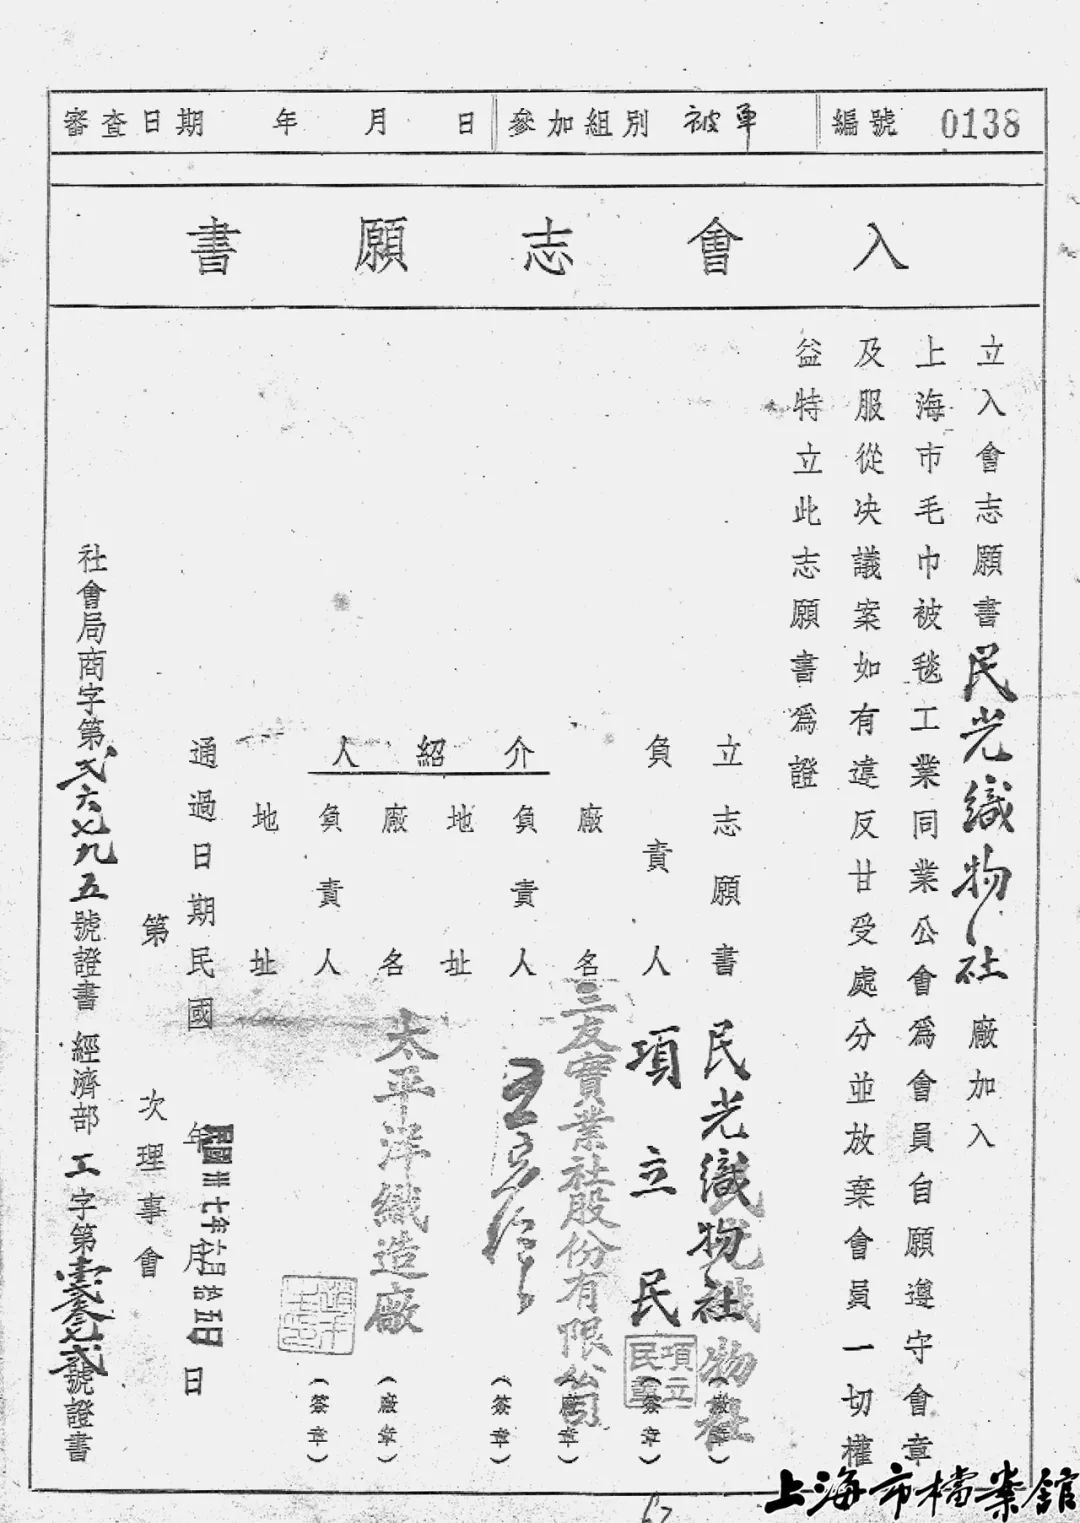 審查日期 年 月 日 參加組別 被單 編號 0138
入會志願書
立入會志願書民光織物社 廠加入
上海市毛巾被毯工業同業公會為會員自願遵守會章
及服從決議案如有違反甘受處分並放棄會員一切權
益特立此志願書為證
立志願書 民光織物社 (廠章)
負責人 項立民 (簽章)
項立民章
介紹人
廠名 三友實業社股份有限公司 (廠章)
負責人 (簽章)
地址
廠名 太平洋織造廠 (廠章)
負責人 (簽章)
地址
通過日期民國 年 月 日
民國卅七年 月拾五日
第 次理事會
社會局商字第弍六七九五號證書 經濟部工字第 號證書
上海市檔案館